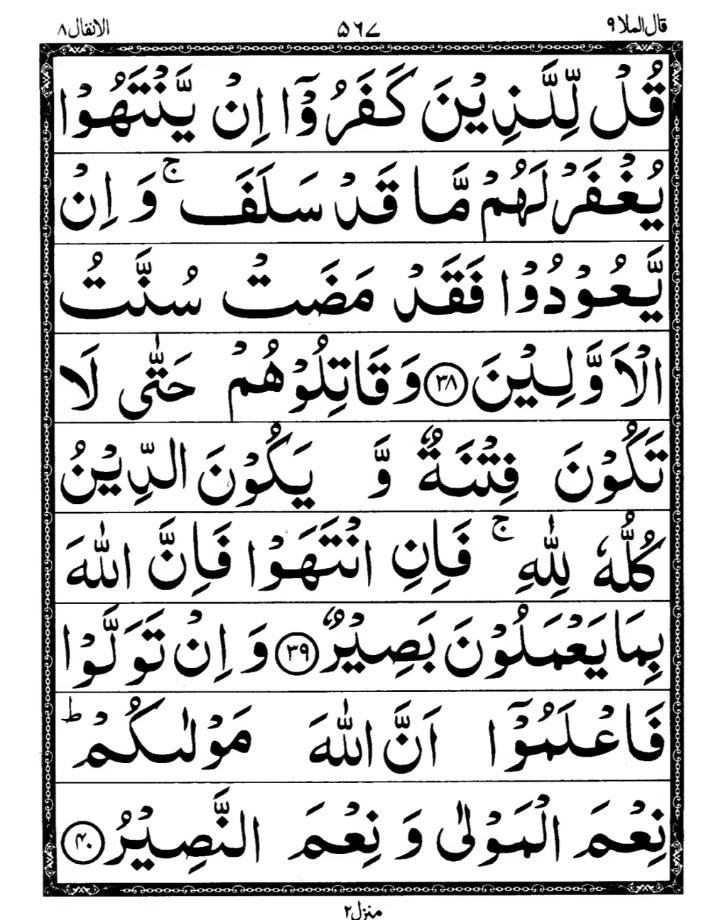 قال الملا ٩ ٥٦٧ الانفال ٨
قُلْ لِّلَّذِيْنَ كَفَرُوْۤا اِنْ يَّنْتَهُوْا
يُغْفَرْ لَهُمْ مَّا قَدْ سَلَفَ ۚ وَ اِنْ
يَّعُوْدُوْا فَقَدْ مَضَتْ سُنَّتُ
الْاَوَّلِيْنَ ﴿٣٨﴾ وَ قَاتِلُوْهُمْ حَتّٰى لَا
تَكُوْنَ فِتْنَةٌ وَّ يَكُوْنَ الدِّيْنُ
كُلُّهٗ لِلّٰهِ ۚ فَاِنِ انْتَهَوْا فَاِنَّ اللّٰهَ
بِمَا يَعْمَلُوْنَ بَصِيْرٌ ﴿٣٩﴾ وَ اِنْ تَوَلَّوْا
فَاعْلَمُوْۤا اَنَّ اللّٰهَ مَوْلٰىكُمْ ؕ
نِعْمَ الْمَوْلٰى وَ نِعْمَ النَّصِيْرُ ﴿٤٠﴾
منزل ٢